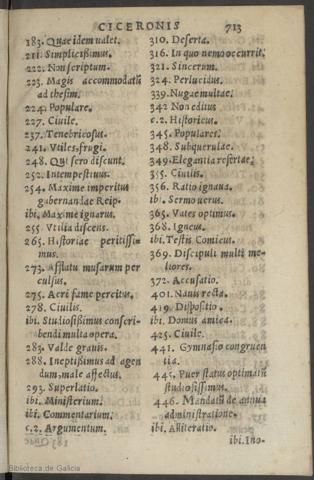 CICERONIS 713
183. Quæ idem ualet.
211. Simplicißimus.
222. Non scriptum.
223. Magis accommodatũ
ad thesim.
224. Populare.
227. Ciuile.
237. Tenebricosus.
241. Vtiles, frugi.
248. Qui sero discunt.
252. Intempestiuus.
254. Maxime imperitus
gubernandæ Reip.
ibi. Maxime ignarus.
255. Vtilia discens.
265. Historiae peritissi-
mus.
273. Afflatu musarum per
culsus.
275. Acri fame percitus.
278. Ciuilis.
ibi. Studiosißimus conscri-
bendi multa opera.
285. Valde grauis.
288. Ineptißimus ad agen
dum, male affectus.
293. Superlatio.
ibi. Ministerium.
ibi. Commentarium.
c.2. Argumentum.
310. Deserta.
316. In quo nemo occurrit.
321. Sincerum.
324. Perlucidus.
339. Nugae multae.
342 Non editus
c.2. Historicus.
345. Populares.
348. Subquerulae.
349. Elegantia refertae.
355. Ciuilis.
356. Ratio ignaua.
ibi. Sermo uerus.
365. Vates optimus.
368. Igneus.
ibi. Testis Comicus.
369. Discipuli multi me-
liores.
372. Accusatio.
401. Nauis recta.
419. Dispositio.
ibi. Domus amica.
425. Ciuile.
441. Gymnasio congruen
tia.
445. Puer status optimatũ
studiosissimus.
446. Mandatũ de annua
administratione.
ibi. Alliteratio.
ibi. Ino-
Biblioteca de Galicia